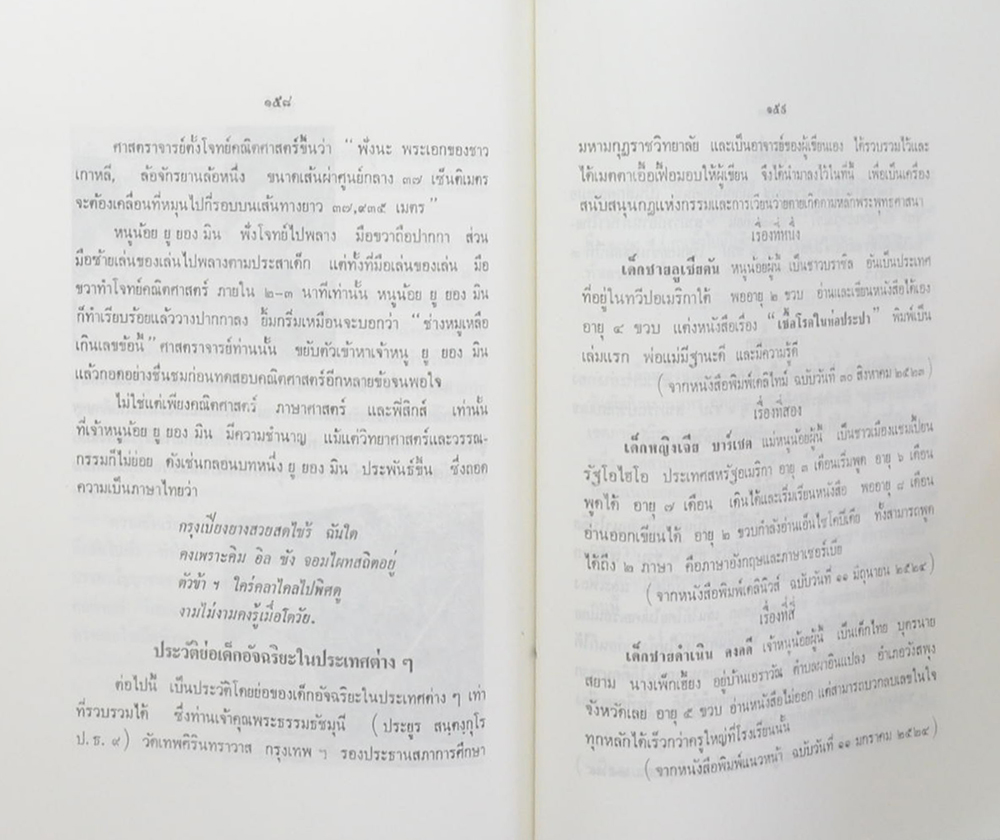 ๑๕๘
ศาสตราจารย์ตั้งโจทย์คณิตศาสตร์ขึ้นว่า “ ฟังนะ พระเอกของชาว
เกาหลี, ล้อจักรยานล้อหนึ่ง ขนาดเส้นผ่าศูนย์กลาง ๓๗ เซ็นติเมตร
จะต้องเคลื่อนที่หมุนไปกี่รอบบนเส้นทางยาว ๓๗,๙๓๕ เมตร”
หนูน้อย ยู ยอง มิน ฟังโจทย์ไปพลาง มือขวาถือปากกา ส่วน
มือซ้ายเล่นของเล่นไปพลางตามประสาเด็ก แต่ทั้งที่มือเล่นของเล่น มือ
ขวาทำโจทย์คณิตศาสตร์ ภายใน ๒-๓ นาทีเท่านั้น หนูน้อย ยู ยอง มิน
ก็ทำเรียบร้อยแล้ววางปากกาลง ยิ้มกริ่มเหมือนจะบอกว่า “ ช่างหมูเหลือ
เกินเลขข้อนี้ ” ศาสตราจารย์ท่านนั้น ขยับตัวเข้าหาเจ้าหนู ยู ยอง มิน
แล้วกอดอย่างชื่นชมก่อนทดสอบคณิตศาสตร์อีกหลายข้อจนพอใจ
ไม่ใช่แต่เพียงคณิตศาสตร์ ภาษาศาสตร์ และฟิสิกส์ เท่านั้น
ที่เจ้าหนูน้อย ยู ยอง มิน มีความชำนาญ แม้แต่วิทยาศาสตร์และวรรณ-
กรรมก็ไม่ย่อย ดังเช่นกลอนบทหนึ่ง ยู ยอง มิน ประพันธ์ขึ้น ซึ่งถอด
ความเป็นภาษาไทยว่า
กรุงเปียงยางสวยสดไซร้ ฉันใด
คงเพราะคิม อิล ซัง จอมไผทสถิตอยู่
ตัวข้า ฯ ใคร่คลาไคลไปพิศดู
งามไม่งามคงรู้เมื่อโตวัย.
ประวัติย่อเด็กอัจฉริยะในประเทศต่าง ๆ
ต่อไปนี้ เป็นประวัติโดยย่อของเด็กอัจฉริยะในประเทศต่าง ๆ เท่า
ที่รวบรวมได้ ซึ่งท่านเจ้าคุณพระธรรมธัชมุนี ( ประยูร สนฺตงฺกุโร
ป. ธ. ๙ ) วัดเทพศิรินทราวาส กรุงเทพ ฯ รองประธานสภาการศึกษา
๑๕๙
มหามกุฏราชวิทยาลัย และเป็นอาจารย์ของผู้เขียนเอง ได้รวบรวมไว้และ
ได้เมตตาเอื้อเฟื้อมอบให้ผู้เขียน จึงได้นำมาลงไว้ในที่นี้ เพื่อเป็นเครื่อง
สนับสนุนกฎแห่งกรรมและการเวียนว่ายตายเกิดตามหลักพระพุทธศาสนา
เรื่องที่หนึ่ง
เด็กชายลูเซียดัน หนูน้อยผู้นี้ เป็นชาวบราซิล อันเป็นประเทศ
ที่อยู่ในทวีปอเมริกาใต้ พออายุ ๒ ขวบ อ่านและเขียนหนังสือได้เอง
อายุ ๔ ขวบ แต่งหนังสือเรื่อง “เชื้อโรคในท่อประปา” พิมพ์เป็น
เล่มแรก พ่อแม่มีฐานะดี และมีความรู้ดี
( จากหนังสือพิมพ์เดลิไทม์ ฉบับวันที่ ๓๐ สิงหาคม ๒๕๒๓ )
เรื่องที่สอง
เด็กหญิงเจีย บาร์เซต แม่หนูน้อยผู้นี้ เป็นชาวเมืองแชมเปี้ยน
รัฐโอไฮโอ ประเทศสหรัฐอเมริกา อายุ ๓ เดือนเริ่มพูด อายุ ๖ เดือน
พูดได้ อายุ ๗ เดือน เดินได้และเริ่มเรียนหนังสือ พออายุ ๘ เดือน
อ่านออกเขียนได้ อายุ ๒ ขวบกำลังอ่านเอ็นไซโคปีเดีย ทั้งสามารถพูด
ได้ถึง ๒ ภาษา คือภาษาอังกฤษและภาษาเซอร์เบีย
( จากหนังสือพิมพ์เดลินิวส์ ฉบับวันที่ ๑๑ มิถุนายน ๒๕๒๔ )
เรื่องที่สี่
เด็กชายดำเนิน คงคดี เจ้าหนูน้อยผู้นี้ เป็นเด็กไทย บุตรนาย
สยาม นางเพ็กเฮี้ยง อยู่บ้านเอราวัณ ตำบลผาอินแปลง อำเภอวังสพุง
จังหวัดเลย อายุ ๕ ขวบ อ่านหนังสือไม่ออก แต่สามารถบวกลบเลขในใจ
ทุกหลักได้เร็วกว่าครูใหญ่ที่โรงเรียนนั้น
( จากหนังสือพิมพ์แนวหน้า ฉบับวันที่ ๑๑ มกราคม ๒๕๒๔ )